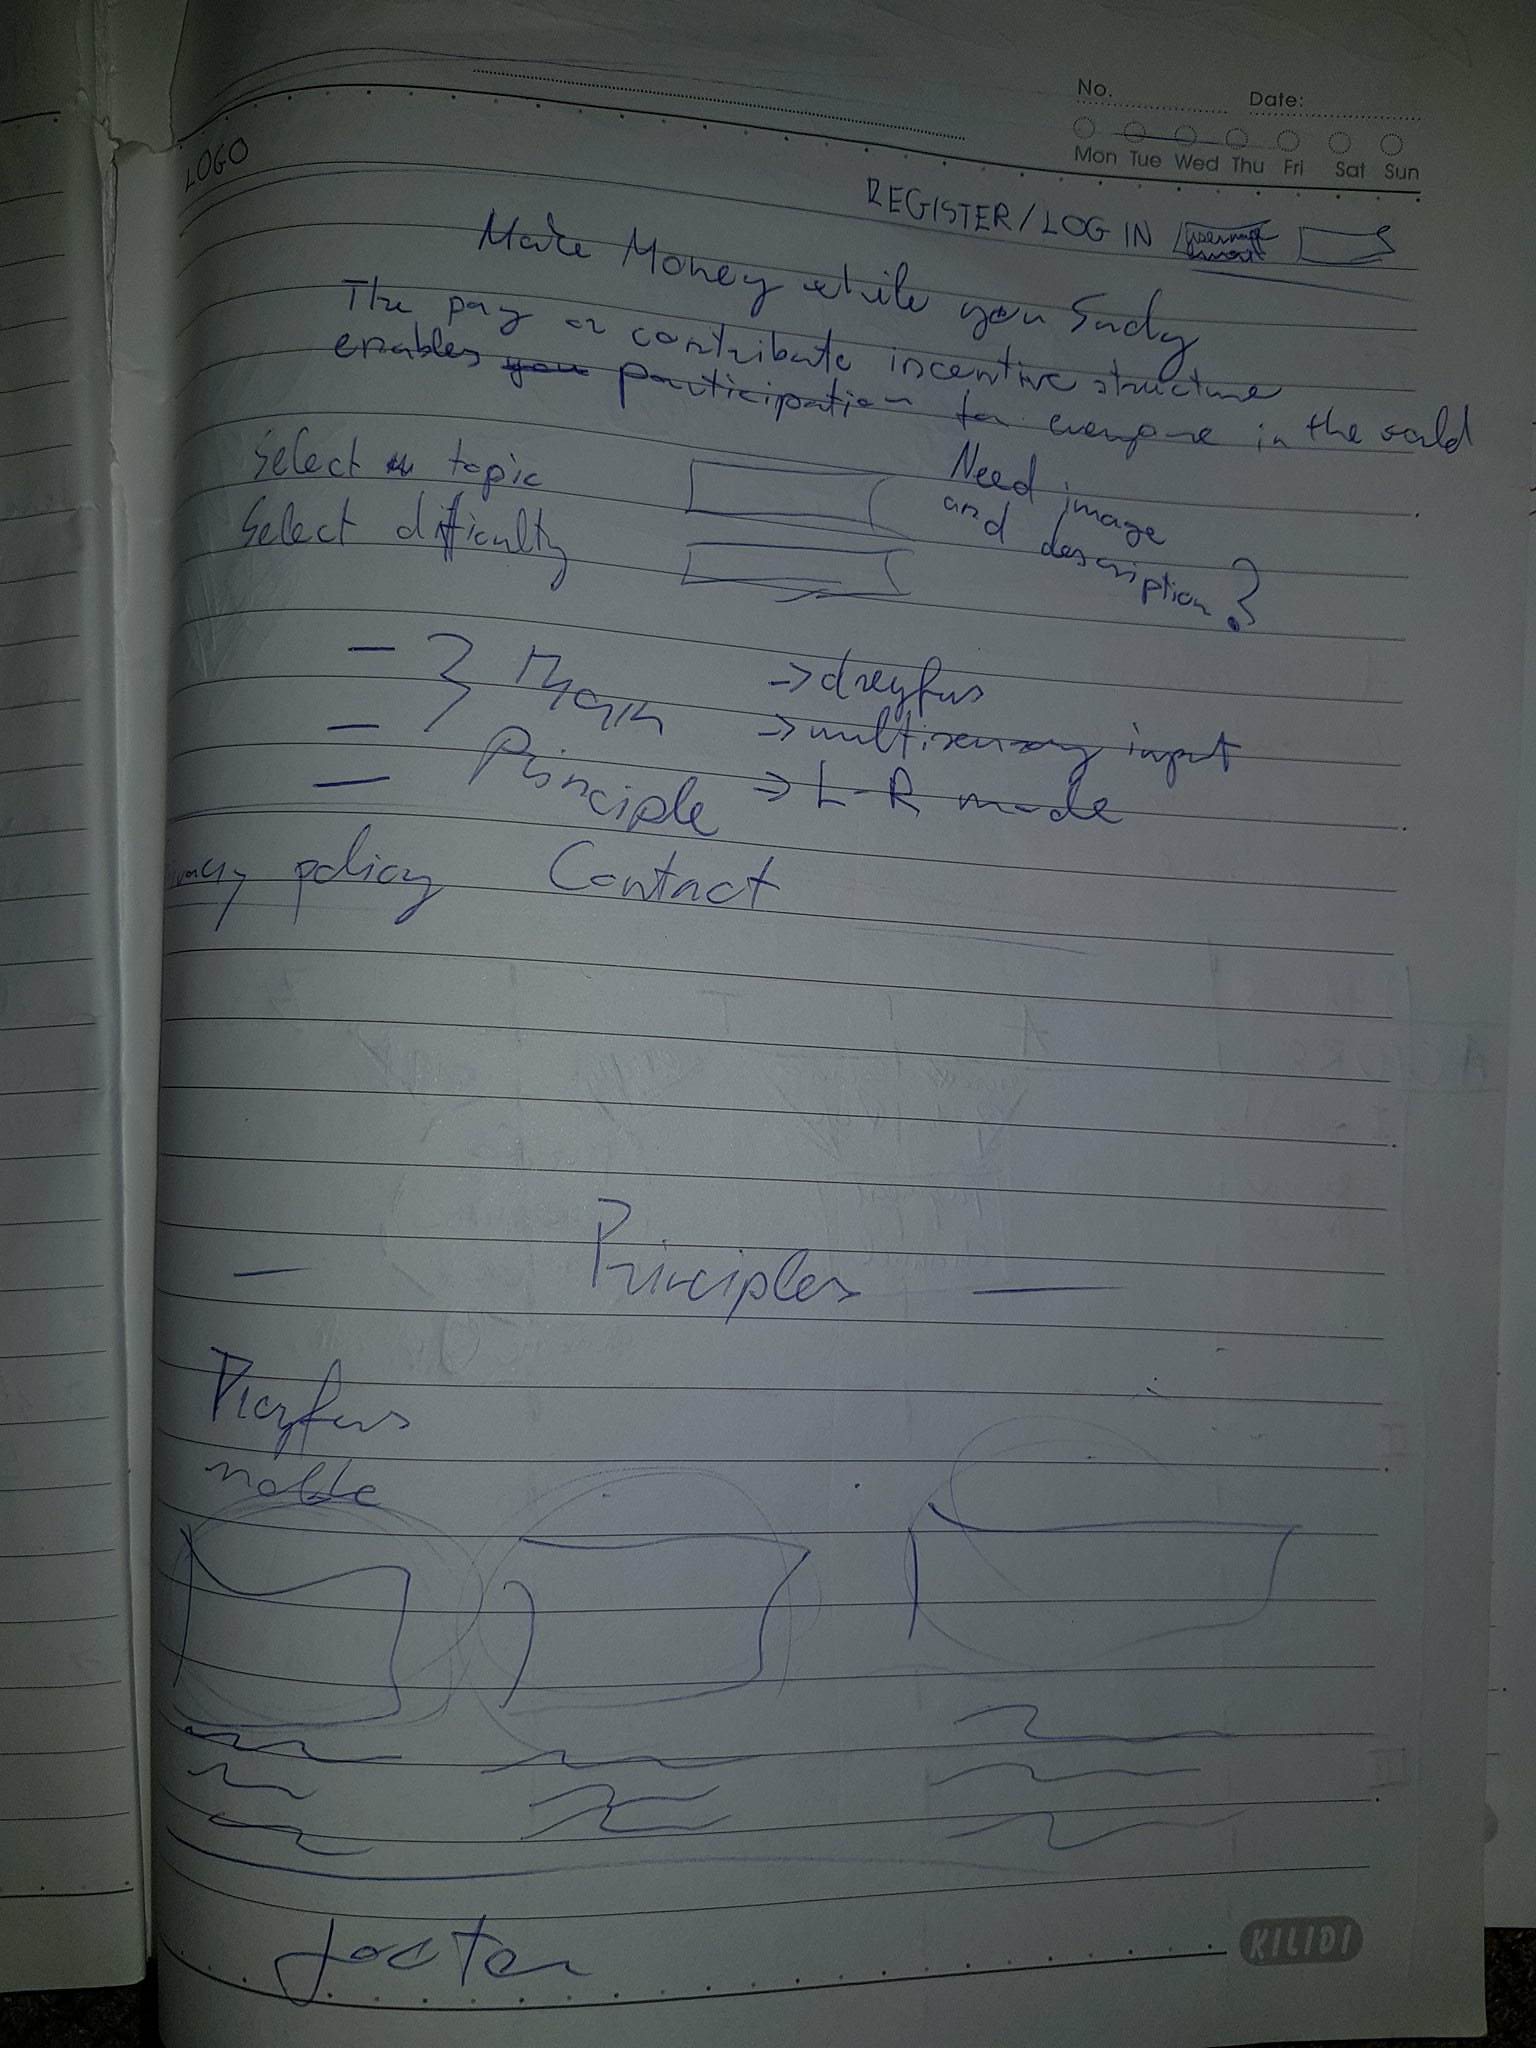 No. Date:
Mon Tue Wed Thu Fri Sat Sun
LOGO
REGISTER/LOG IN
Make Money while you Sudy
The pay or contribute incentive structure
enables you participation for everyone in the world
Select topic
Select difficulty
Need image
and description?
Main
Principle
→ dreyfus
→ multisensory input
→ L-R mode
policy Contact
Principles
Dreyfus
footer
KILIDI